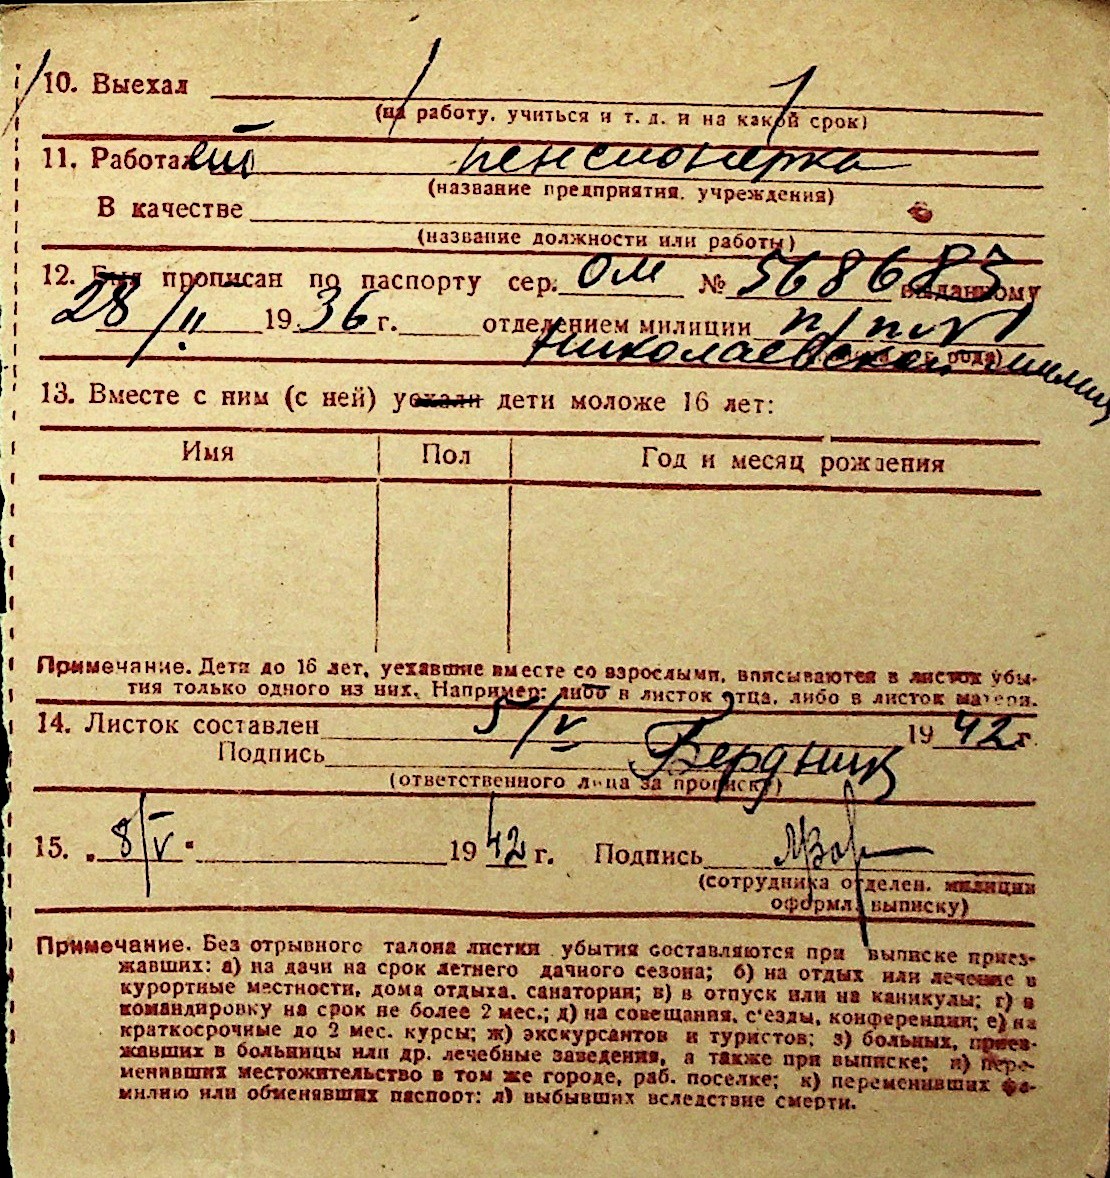 10. Выехал
(на работу, учиться и т. д. и на какой срок)
11. Работал пенсионерка
(название предприятия, учреждения)
В качестве
(название должности или работы)
12. Был прописан по паспорту сер. ОМ № 568683 выданному
28/II 1936 г. отделением милиции
Николаевской милиц
13. Вместе с ним (с ней) уехали дети моложе 16 лет:
Имя Пол Год и месяц рождения
Примечание. Дети до 16 лет, уехавшие вместе со взрослыми, вписываются в листок убы-
тия только одного из них. Например: либо в листок отца, либо в листок матери.
14. Листок составлен 5/V 1942 г.
Подпись Бердник
(ответственного лица за прописку)
15. „8/V“ 1942 г. Подпись
(сотрудника отделен. милиции
оформл. выписку)
Примечание. Без отрывного талона листки убытия составляются при выписке приез-
жавших: а) на дачи на срок летнего дачного сезона; б) на отдых или лечение в
курортные местности, дома отдыха, санатории; в) в отпуск или на каникулы; г) в
командировку на срок не более 2 мес.; д) на совещания, с'езды, конференции; е) на
краткосрочные до 2 мес. курсы; ж) экскурсантов и туристов; з) больных, приез-
жавших в больницы или др. лечебные заведения, а также при выписке; и) пере-
менивших местожительство в том же городе, раб. поселке; к) переменивших фа-
милию или обменявших паспорт; л) выбывших вследствие смерти.